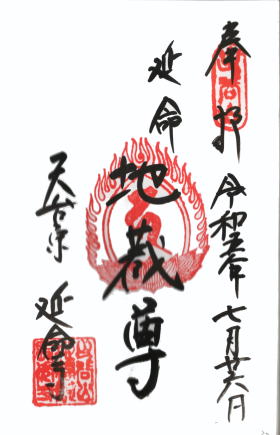 奉拝 令和五年七月廿六日
延命
地蔵尊
天台宗 延命寺